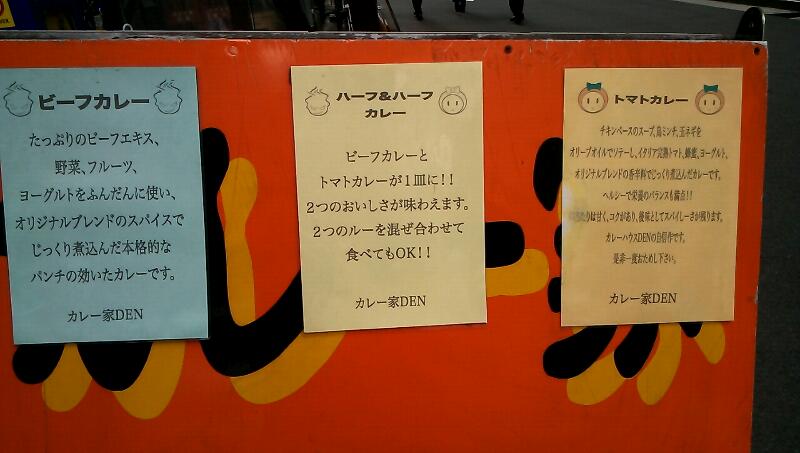 ビーフカレー
たっぷりのビーフエキス、
野菜、フルーツ、
ヨーグルトをふんだんに使い、
オリジナルブレンドのスパイスで
じっくり煮込んだ本格的な
パンチの効いたカレーです。
カレー家DEN
ハーフ&ハーフ
カレー
ビーフカレーと
トマトカレーが1皿に!!
2つのおいしさが味わえます。
2つのルーを混ぜ合わせて
食べてもOK!!
カレー家DEN
トマトカレー
チキンベースのスープ、鳥ミンチ、玉ネギを
オリーブオイルでソテーし、イタリア完熟トマト、蜂蜜、ヨーグルト、
オリジナルブレンドの香辛料でじっくり煮込んだカレーです。
ヘルシーで栄養のバランスも満点!!
たりは甘く、コクがあり、後味としてスパイシーさが残ります。
カレーハウスDENの自信作です。
是非一度おためし下さい。
カレー家DEN